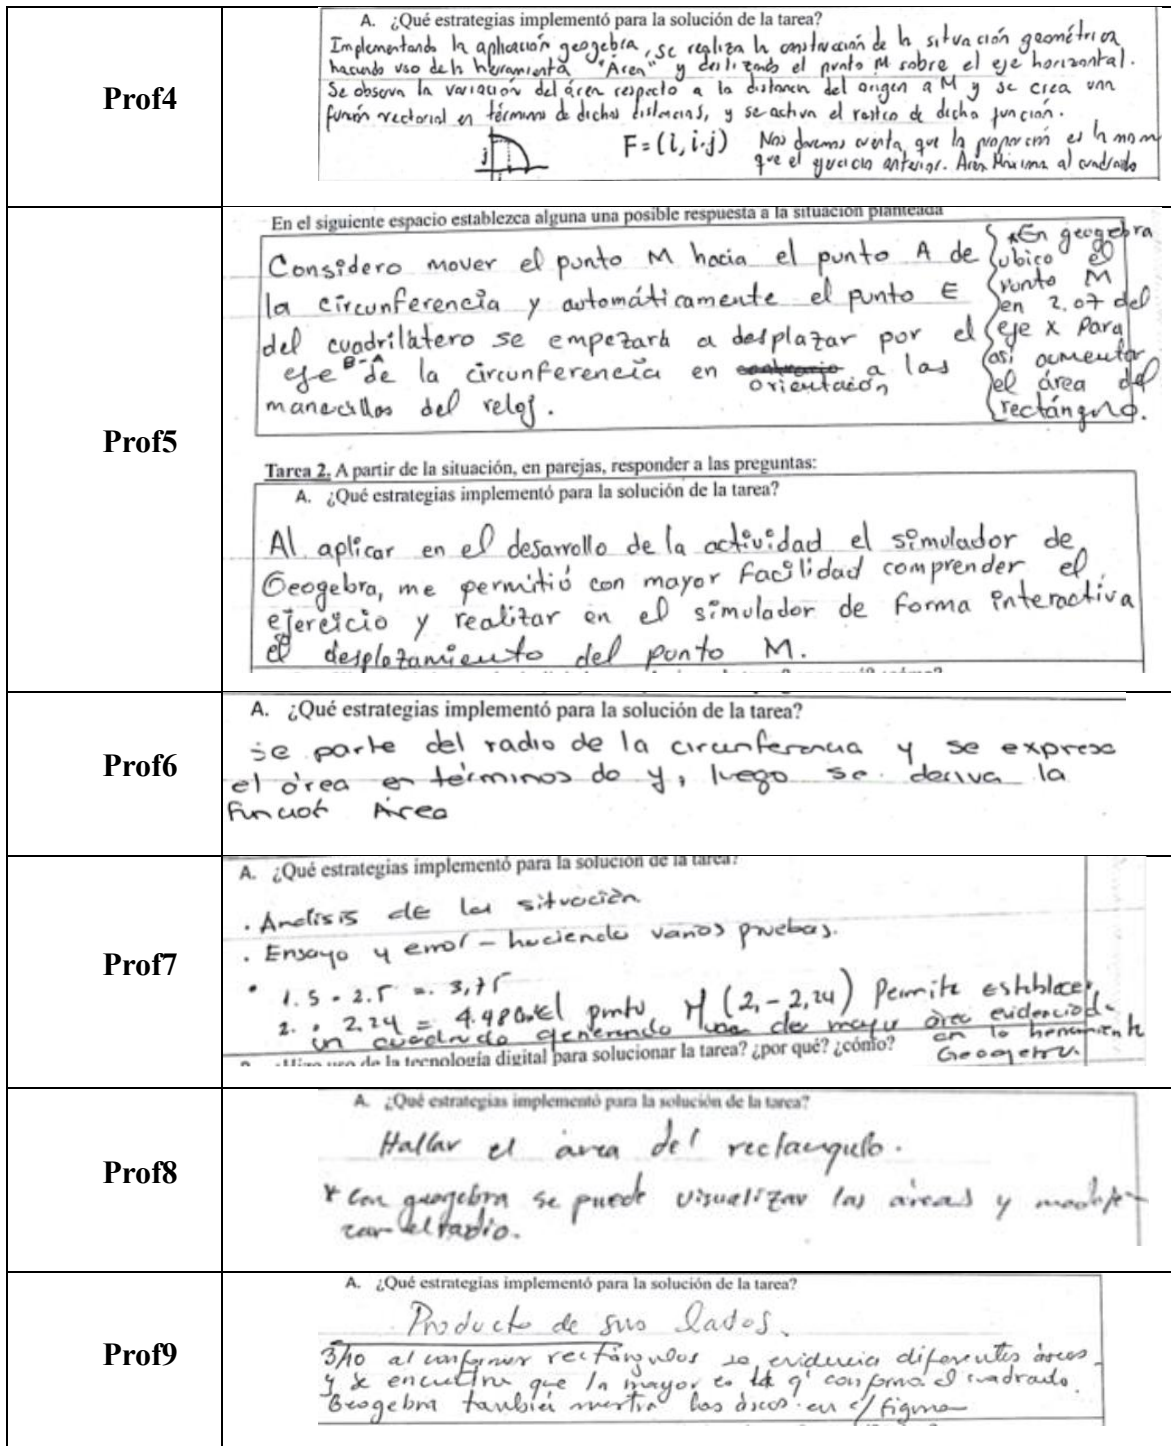 Prof4
A. ¿Qué estrategias implementó para la solución de la tarea?
Implementando la aplicación geogebra, se realiza la construcción de la situación geométrica
haciendo uso de la herramienta "Área" y deslizando el punto M sobre el eje horizontal.
Se observa la variación del área respecto a la distancia del origen a M y se crea una
función vectorial en términos de dichas distancias, y se activa el rastro de dicha función.
j
F = (i, i·j) Nos damos cuenta que la proporción es la misma
que el ejercicio anterior. Área Máxima al cuadrado
Prof5
En el siguiente espacio establezca alguna una posible respuesta a la situación planteada
Considero mover el punto M hacia el punto A de
la circunferencia y automáticamente el punto E
del cuadrilátero se empezará a desplazar por el
eje B-A de la circunferencia en orientación a las
manecillas del reloj.
*En geogebra
ubico el
punto M
en 2.07 del
eje x para
así aumentar
el área del
rectángulo.
Tarea 2. A partir de la situación, en parejas, responder a las preguntas:
A. ¿Qué estrategias implementó para la solución de la tarea?
Al aplicar en el desarrollo de la actividad el simulador de
Geogebra, me permitió con mayor facilidad comprender el
ejercicio y realizar en el simulador de forma interactiva
el desplazamiento del punto M.
Prof6
A. ¿Qué estrategias implementó para la solución de la tarea?
se parte del radio de la circunferencia y se expresa
el área en términos de y, luego se deriva la
función Área
Prof7
A. ¿Qué estrategias implementó para la solución de la tarea?
· Analisis de la situación
· Ensayo y error - haciendo varios pruebas.
· 1.5 · 2.5 = 3,75
2 · 2.24 = 4.48 el punto M (2,- 2,24) Permite establecer
un cuadrado generando de mayor área evidenciad-
en la herramienta
Geogebra.
¿Hizo uso de la tecnología digital para solucionar la tarea? ¿por qué? ¿cómo?
Prof8
A. ¿Qué estrategias implementó para la solución de la tarea?
Hallar el área del rectángulo.
* Con geogebra se puede visualizar las áreas y
el radio.
Prof9
A. ¿Qué estrategias implementó para la solución de la tarea?
Producto de sus lados.
al conformar rectángulos se evidencia diferentes áreas
y se encuentra que la mayor es la q' conforma el cuadrado.
Geogebra también muestra las áreas en c/ figura